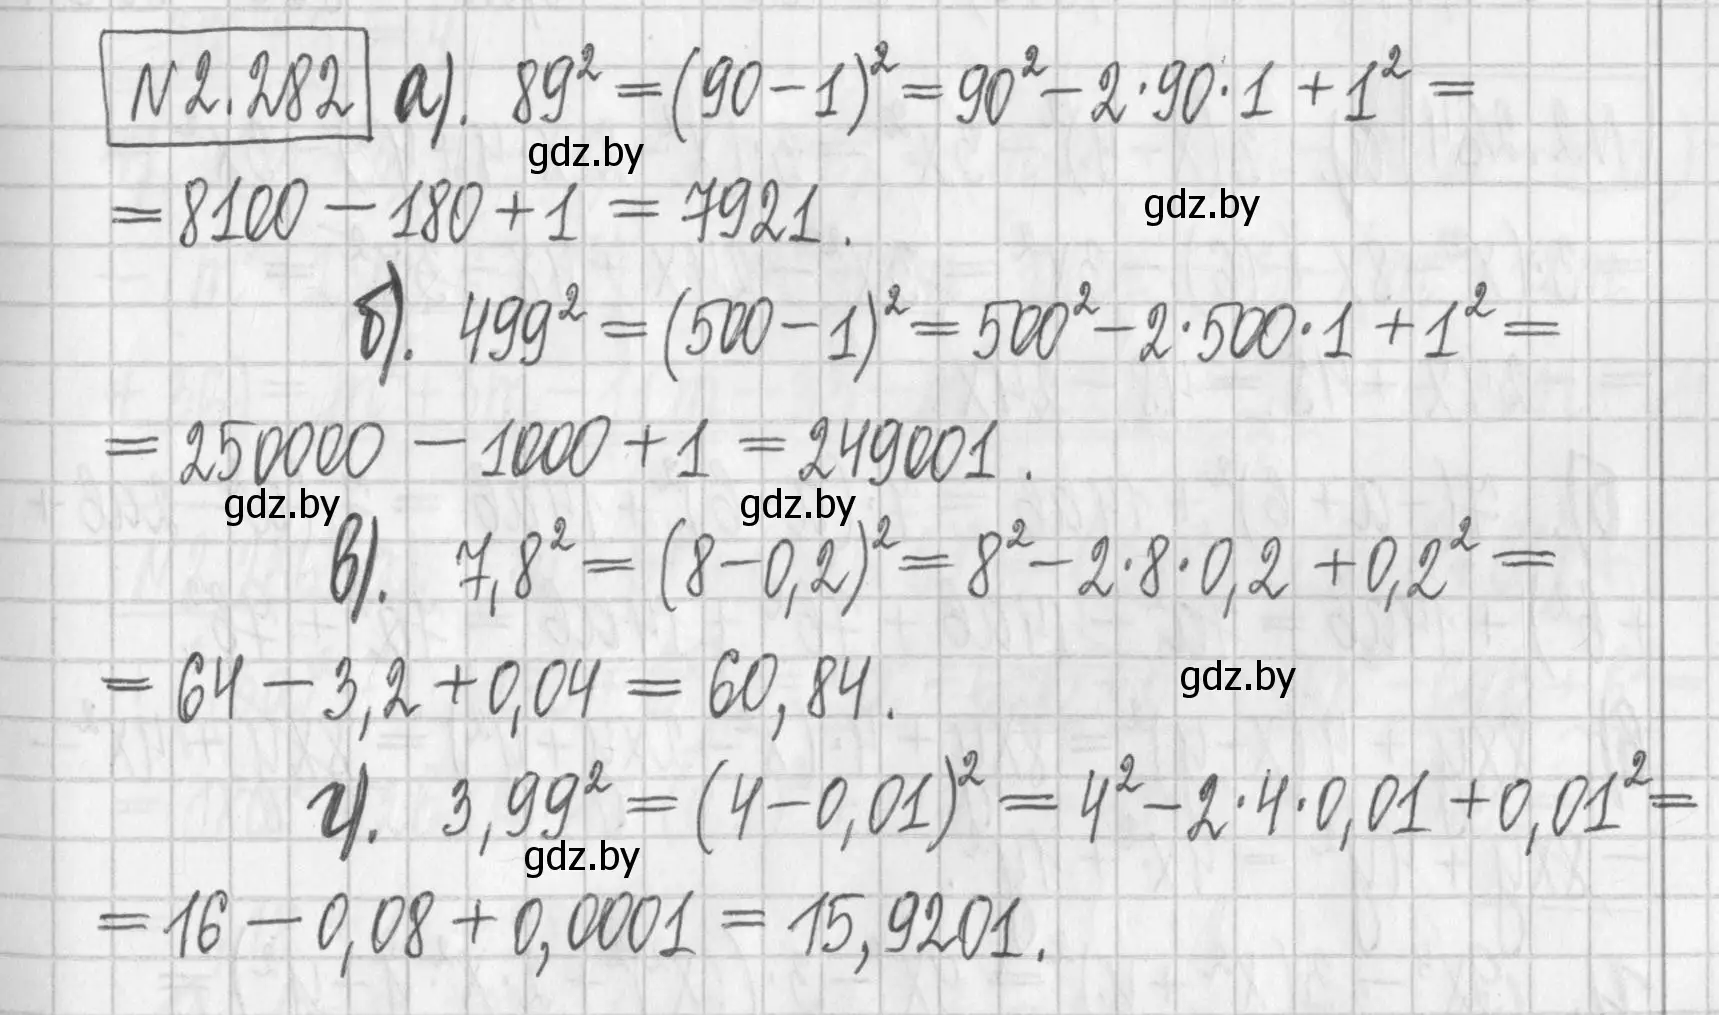 N2.282 а). 89² = (90 - 1)² = 90² - 2·90·1 + 1² =
gdz.by
= 8100 - 180 + 1 = 7921.
gdz.by
б). 499² = (500 - 1)² = 500² - 2·500·1 + 1² =
= 250000 - 1000 + 1 = 249001.
gdz.by gdz.by
в). 7,8² = (8 - 0,2)² = 8² - 2·8·0,2 + 0,2² =
= 64 - 3,2 + 0,04 = 60,84.
gdz.by
г). 3,99² = (4 - 0,01)² = 4² - 2·4·0,01 + 0,01² =
gdz.by
= 16 - 0,08 + 0,0001 = 15,9201.